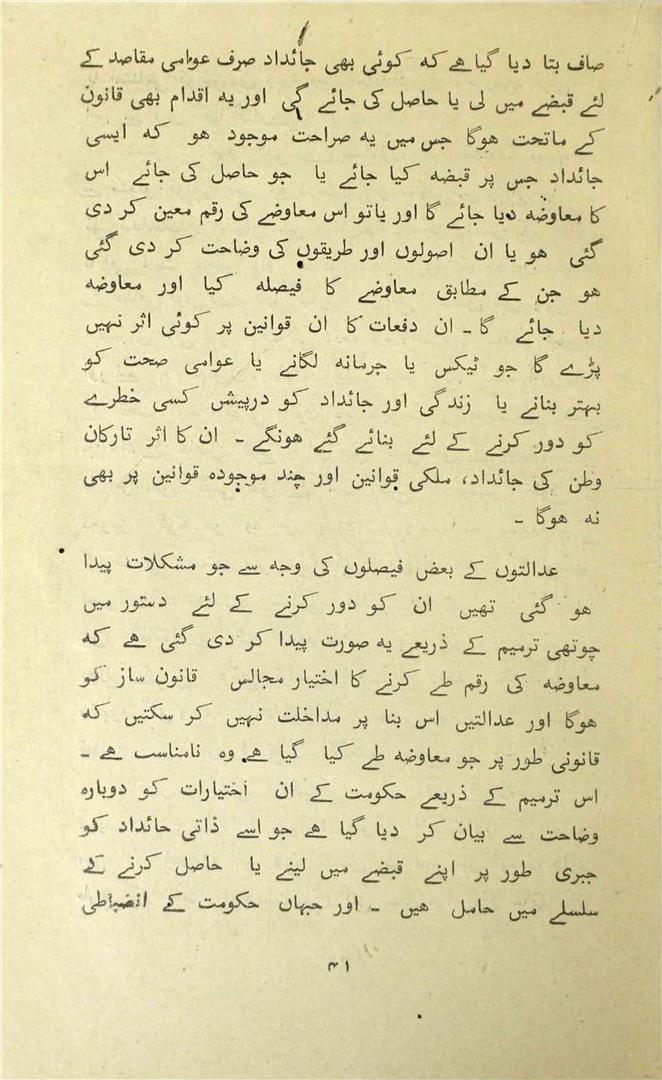 صاف بتا دیا گیا ھے کہ کوئی بھی جائداد صرف عوامی مقاصد کے
لئے قبضے میں لی یا حاصل کی جائے گی اور یہ اقدام بھی قانون
کے ماتحت ھوگا جس میں یہ صراحت موجود ھو کہ ایسی
جائداد جس پر قبضہ کیا جائے یا جو حاصل کی جائے اس
کا معاوضہ دیا جائے گا اور یاتو اس معاوضے کی رقم معین کر دی
گئی ھو یا ان اصولوں اور طریقوں کی وضاحت کر دی گئی
ھو جن کے مطابق معاوضے کا فیصلہ کیا اور معاوضہ
دیا جائے گا ۔ ان دفعات کا ان قوانین پر کوئی اثر نہیں
پڑے گا جو ٹیکس یا جرمانہ لگانے یا عوامی صحت کو
بہتر بنانے یا زندگی اور جائداد کو درپیش کسی خطرے
کو دور کرنے کے لئے بنائے گئے ھونگے ۔ ان کا اثر تارکان
وطن کی جائداد، ملکی قوانین اور چند موجودہ قوانین پر بھی
نہ ھوگا ۔
عدالتوں کے بعض فیصلوں کی وجہ سے جو مشکلات پیدا
ھو گئی تھیں ان کو دور کرنے کے لئے دستور میں
چوتھی ترمیم کے ذریعے یہ صورت پیدا کر دی گئی ھے کہ
معاوضہ کی رقم طے کرنے کا اختیار مجالس قانون ساز کو
ھوگا اور عدالتیں اس بنا پر مداخلت نہیں کر سکتیں کہ
قانونی طور پر جو معاوضہ طے کیا گیا ھے وہ نامناسب ھے ۔
اس ترمیم کے ذریعے حکومت کے ان اختیارات کو دوبارہ
وضاحت سے بیان کر دیا گیا ھے جو اسے ذاتی جائداد کو
جبری طور پر اپنے قبضے میں لینے یا حاصل کرنے کے
سلسلے میں حامل ھیں ۔ اور جہاں حکومت کے انضباطی
۴۱